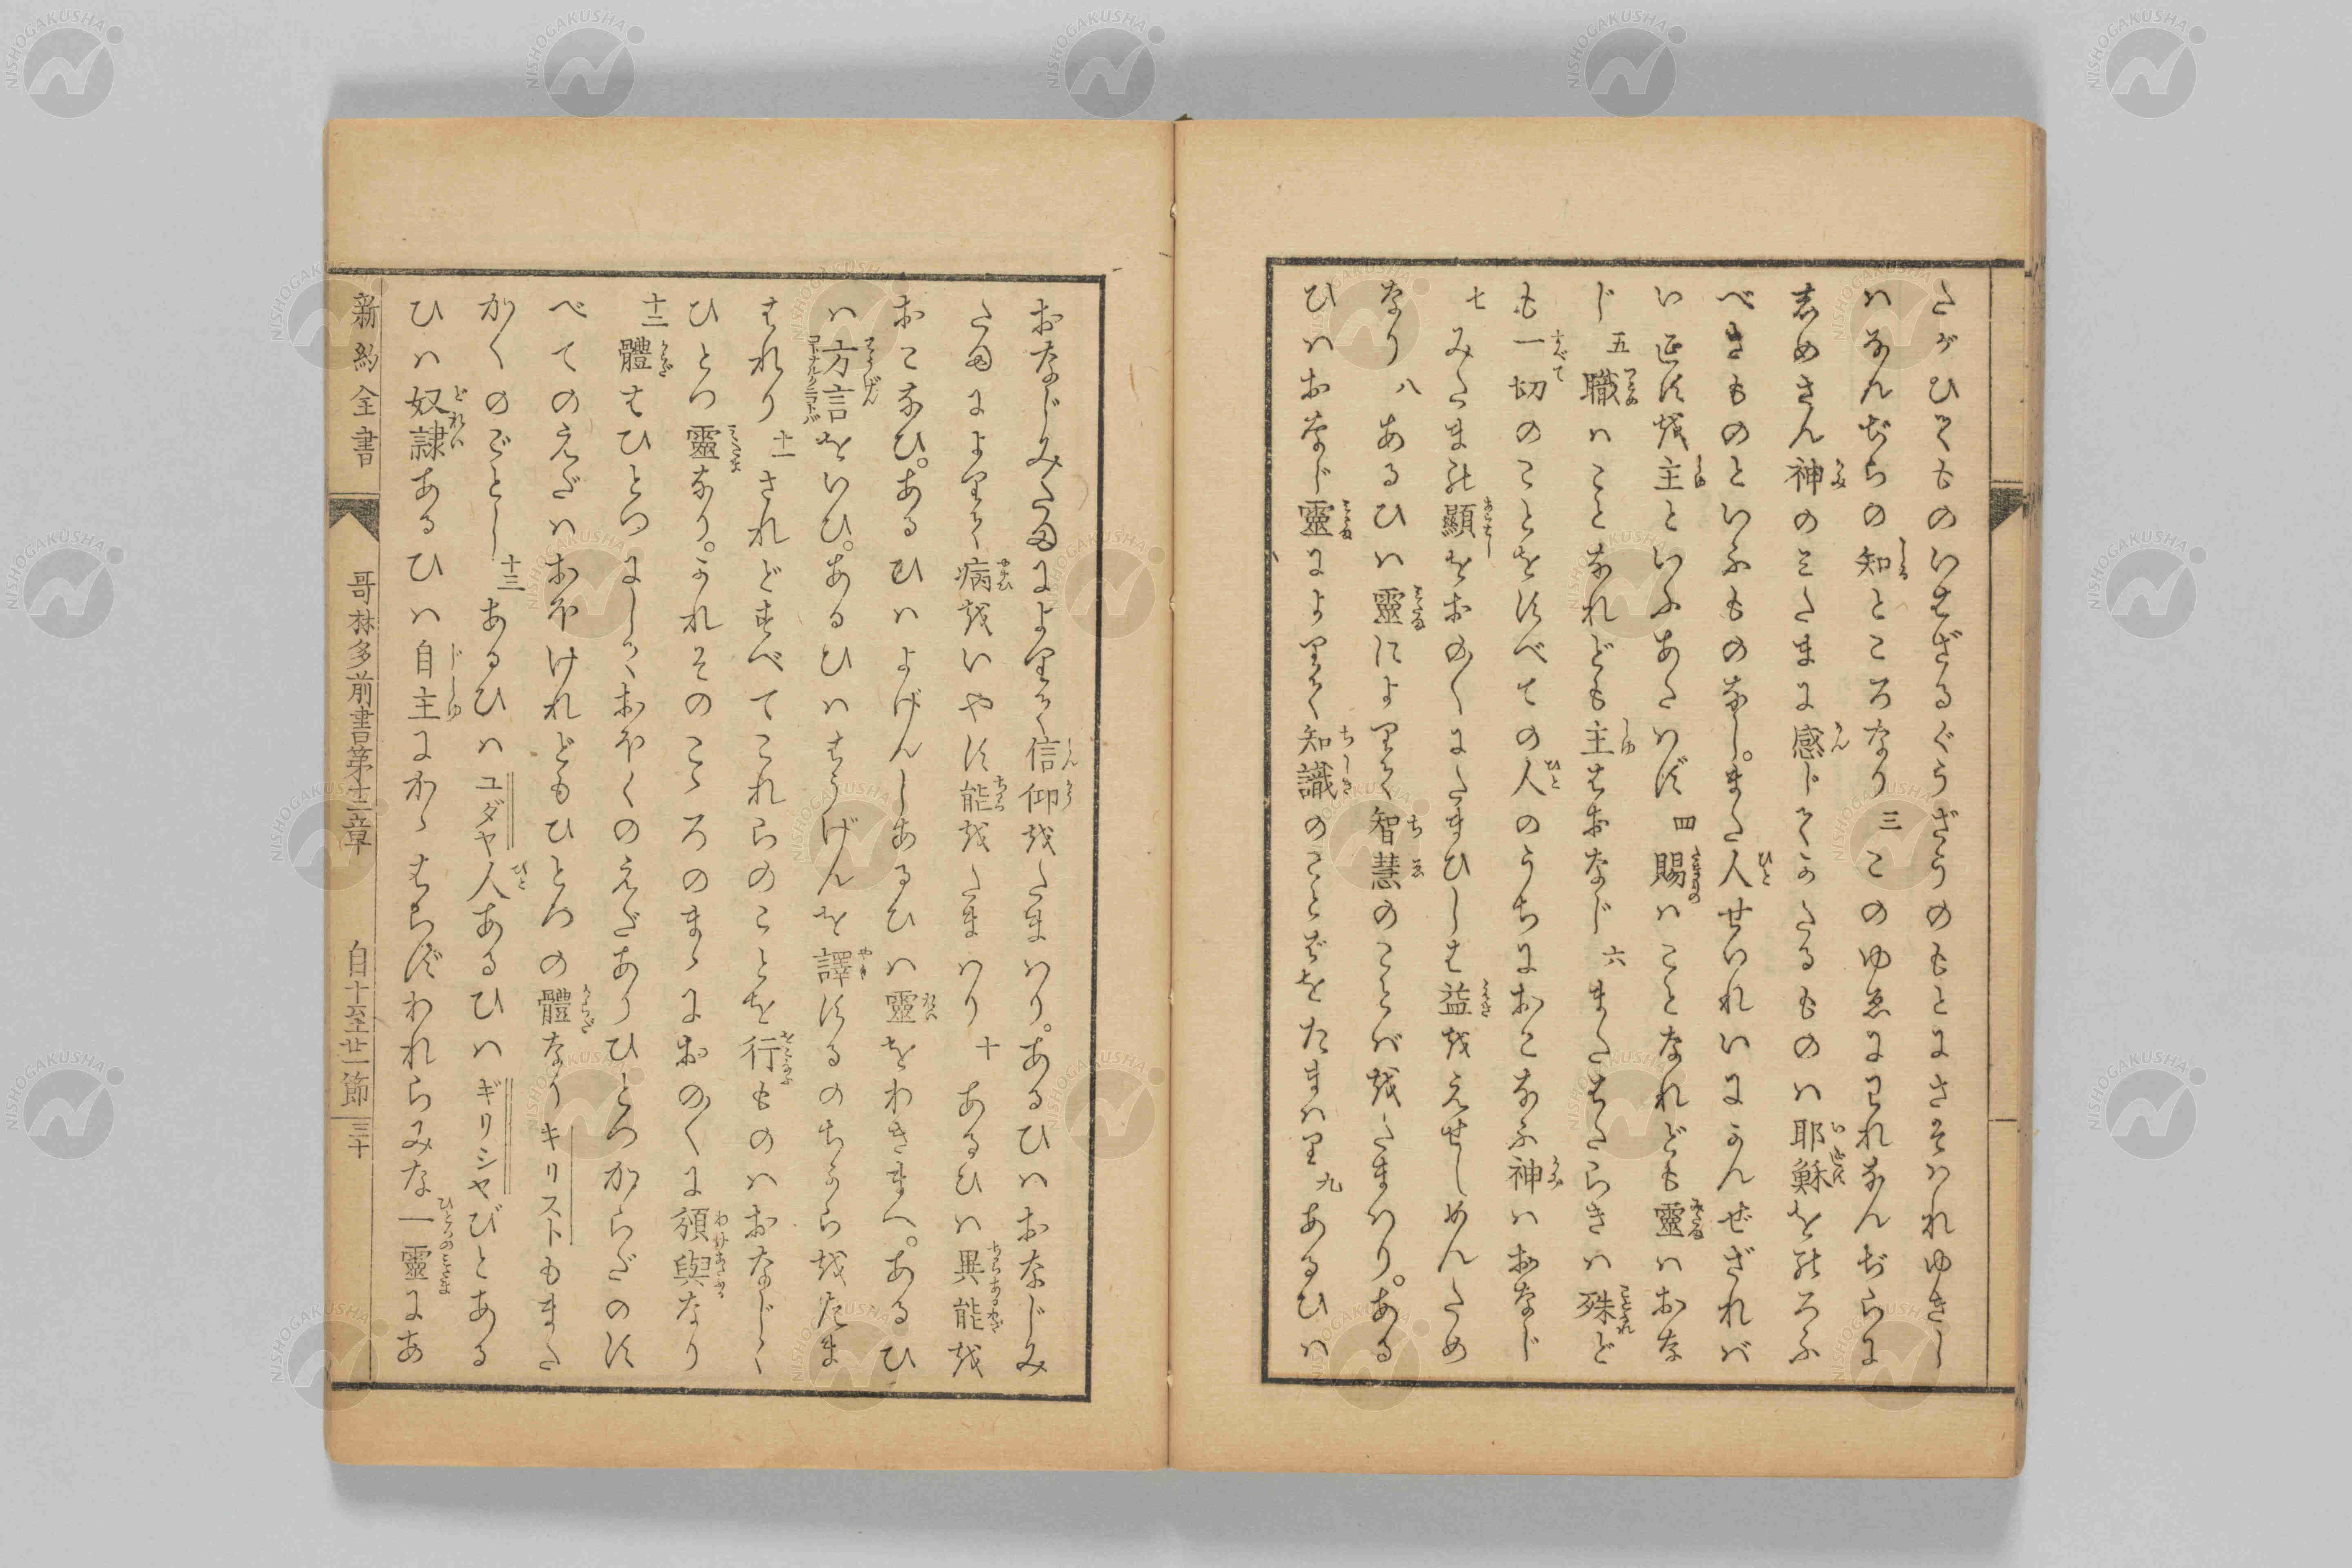 さがひてものいはざるぐうざうのもとにさそはれゆきし
はなんぢらの知ところなり三このゆゑにわれなんぢらに
志めさん神のミたまに感じてかたるものハ耶穌をのろふ
べきものといふものなし。また人せいれいにかんぜざれバ
いエス越主といふあたはず四賜ハことなれども靈ハおな
じ五職ハことなれども主はおなじ六またはたらきハ殊ど
も一切のことをすべての人のうちにおこなふ神ハおなじ
七みたまの顯をおの〳〵にたまひしは益越えせしめんため
なり八あるひハ靈によりて智慧のことバ越たまハり。ある
ひハおなじ靈によりて知識のことばをたまハり九あるひハ
おなじみたまによりて信仰越たまハり。あるひハおなじみ
たまによりて病越いやす能越たまハり十あるひハ異能越
おこなひ。あるひハよげんしあるひハ靈をわきまへ。あるひ
ハ方言をいひ。あるひハはうげんを譯するのちから越たま
はれり十一されどすべてこれらのことを行ものハおなじく
ひとつ靈なり。かれそのこゝろのまゝにおの〳〵に頒與なり
十二體はひとつにしておほくのえだありひとつからだのす
べてのえだハおほけれどもひとつの體なりキリストもまた
かくのごとし十三あるひハユダヤ人あるひハギリシヤびとある
ひハ奴隷あるひハ自主にかゝはらずわれらみな一靈にあ
新約全書　哥林多前書第十二章　自十至廿一節　三十